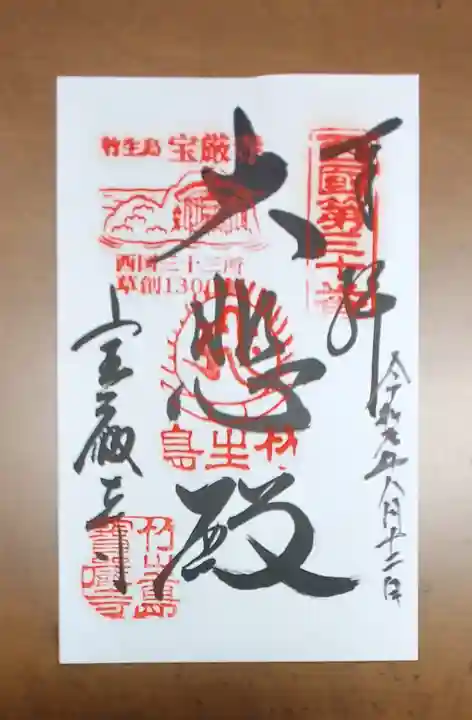 奉拝
西國第三十番
令和元年八月十二日
大悲殿
竹生島 宝厳寺
西国三十三所
草創1300年
竹生島
宝厳寺
竹生島
寶嚴寺